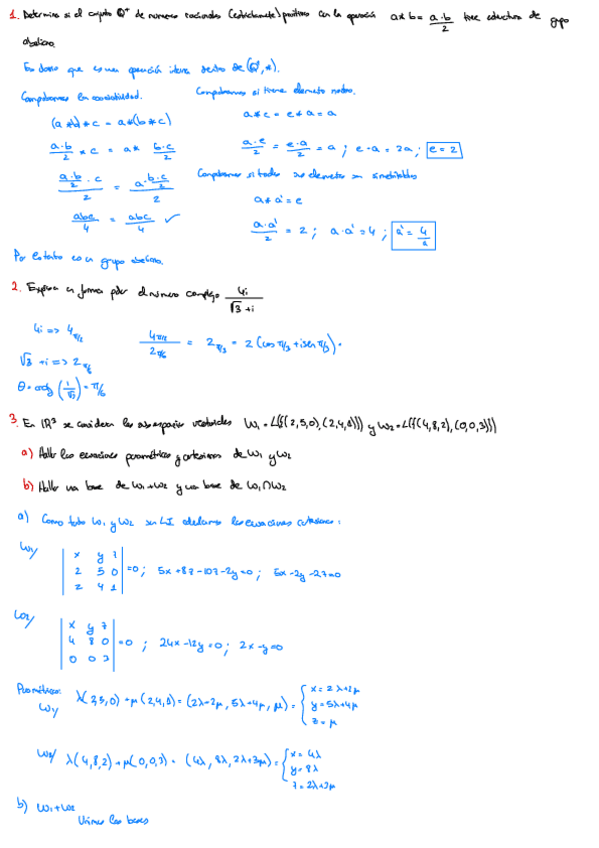 1. Determina si el conjunto Q⁺ de numeros racionales (estrictamente) positivos con la operación a * b = a·b/2 tiene estructura de grupo
abeliano.
Es claro que es una operación interna dentro de (Q⁺, *).
Comprobamos la asociatividad.
(a*b)*c = a*(b*c)
a·b/2 * c = a * b·c/2
(a·b/2 · c)/2 = (a · b·c/2)/2
abc/4 = abc/4 ✓
Comprobamos si tiene elemento neutro.
a*e = e*a = a
a·e/2 = e·a/2 = a ; e·a = 2a ; e = 2
Comprobamos si todos sus elementos son simetrizables
a * a' = e
a·a'/2 = 2 ; a·a' = 4 ; a' = 4/a
Por lo tanto es un grupo abeliano.
2. Expresa en forma polar el número complejo 4i/(√3+i)
4i => 4 π/2
√3 + i => 2 π/6
θ = arctg (1/√3) = π/6
4π/2 / 2π/6 = 2π/3 = 2 (cos π/3 + i sen π/3).
3. En IR³ se consideran los subespacios vectoriales W₁ = L({(2,5,0),(2,4,1)}) y W₂ = L({(4,8,2),(0,0,3)})
a) Hallar las ecuaciones paramétricas y cartesianas de W₁ y W₂
b) Hallar una base de W₁+W₂ y una base de W₁∩W₂
a) Como todo W₁ y W₂ son LI las ecuaciones cartesianas:
W₁/
| x y z |
| 2 5 0 | = 0 ; 5x + 8z - 10z - 2y = 0 ; 5x - 2y - 2z = 0
| 2 4 1 |
W₂/
| x y z |
| 4 8 0 | = 0 ; 24x - 12y = 0 ; 2x - y = 0
| 0 0 3 |
Paramétricas:
W₁/ λ(2,5,0) + μ(2,4,1) = (2λ-2μ, 5λ+4μ, μ) = { x = 2λ+2μ
y = 5λ+4μ
z = μ
W₂/ λ(4,8,2) + μ(0,0,3) = (4λ, 8λ, 2λ+3μ) = { x = 4λ
y = 8λ
z = 2λ+3μ
b) W₁+W₂
Unimos las bases